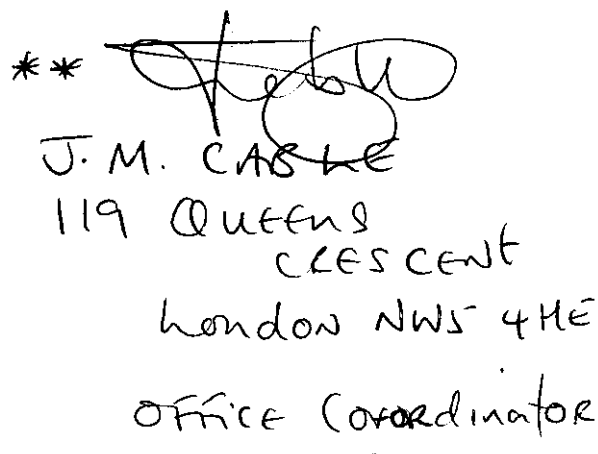 **
J. M. CABLE
119 QUEENS
CRESCENT
London NW5 4HE
OFFICE Coordinator